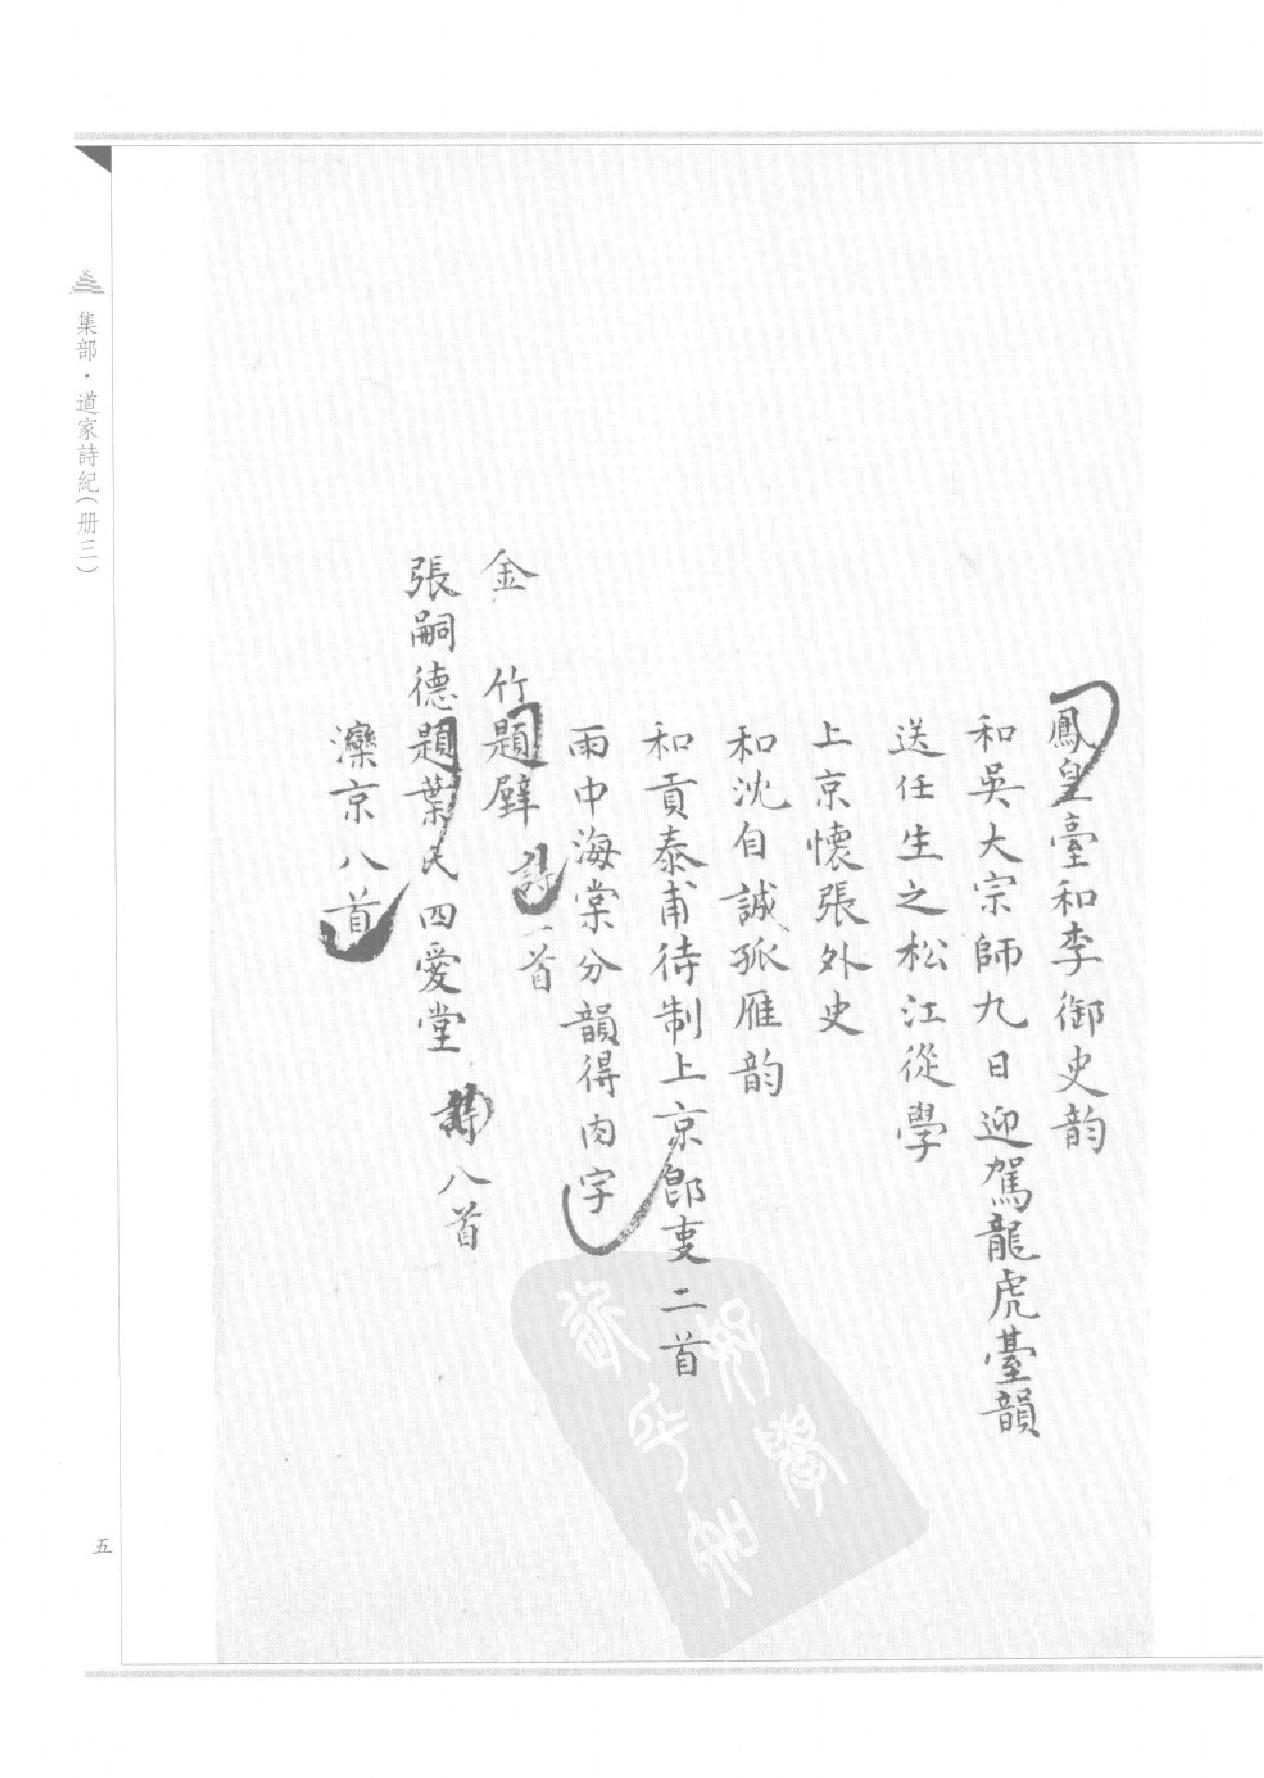 鳳皇臺和李御史韵
和吳大宗師九日迎駕龍虎臺韻
送任生之松江從學
上京懷張外史
和沈自誠孤雁韵
和貢泰甫待制上京即事二首
雨中海棠分韻得肉字
金 竹題壁
詩一首
張嗣德題葉氏四愛堂
詩八首
灤京八首
集部·道家詩紀(册三)
五